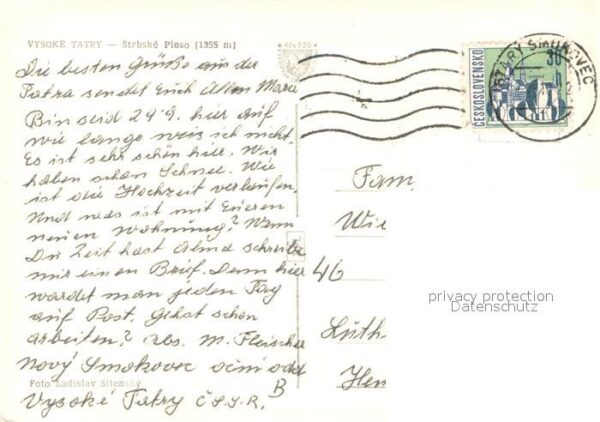 VYSOKÉ TATRY — Štrbské Pleso (1355 m)
Die besten Grüße aus der
Tatra sendet Euch Allen Maria
Bin seid 29.8. hier auf
wie lange weis ich nicht.
Es ist sehr schön hier. Wir
haben schon Schnee. Wie
ist die Hochzeit verlaufen.
Und was ist mit Eueren
neuen Wohnung? Wenn
Du Zeit hast Alma schreibe
mir einen Brief. Denn hier
wardet man jeden Tag
auf Post. Gehst schon
arbeiten? Abs. M. Fleischer
Nový Smokovec oční odd
B
Vysoké Tatry Č.S.S.R.
Foto Ladislav Sitenský
ČESKOSLOVENSKO
30
STARÝ SMOKOVEC
Fam.
Wie
46
Luth
Hen
privacy protection
Datenschutz